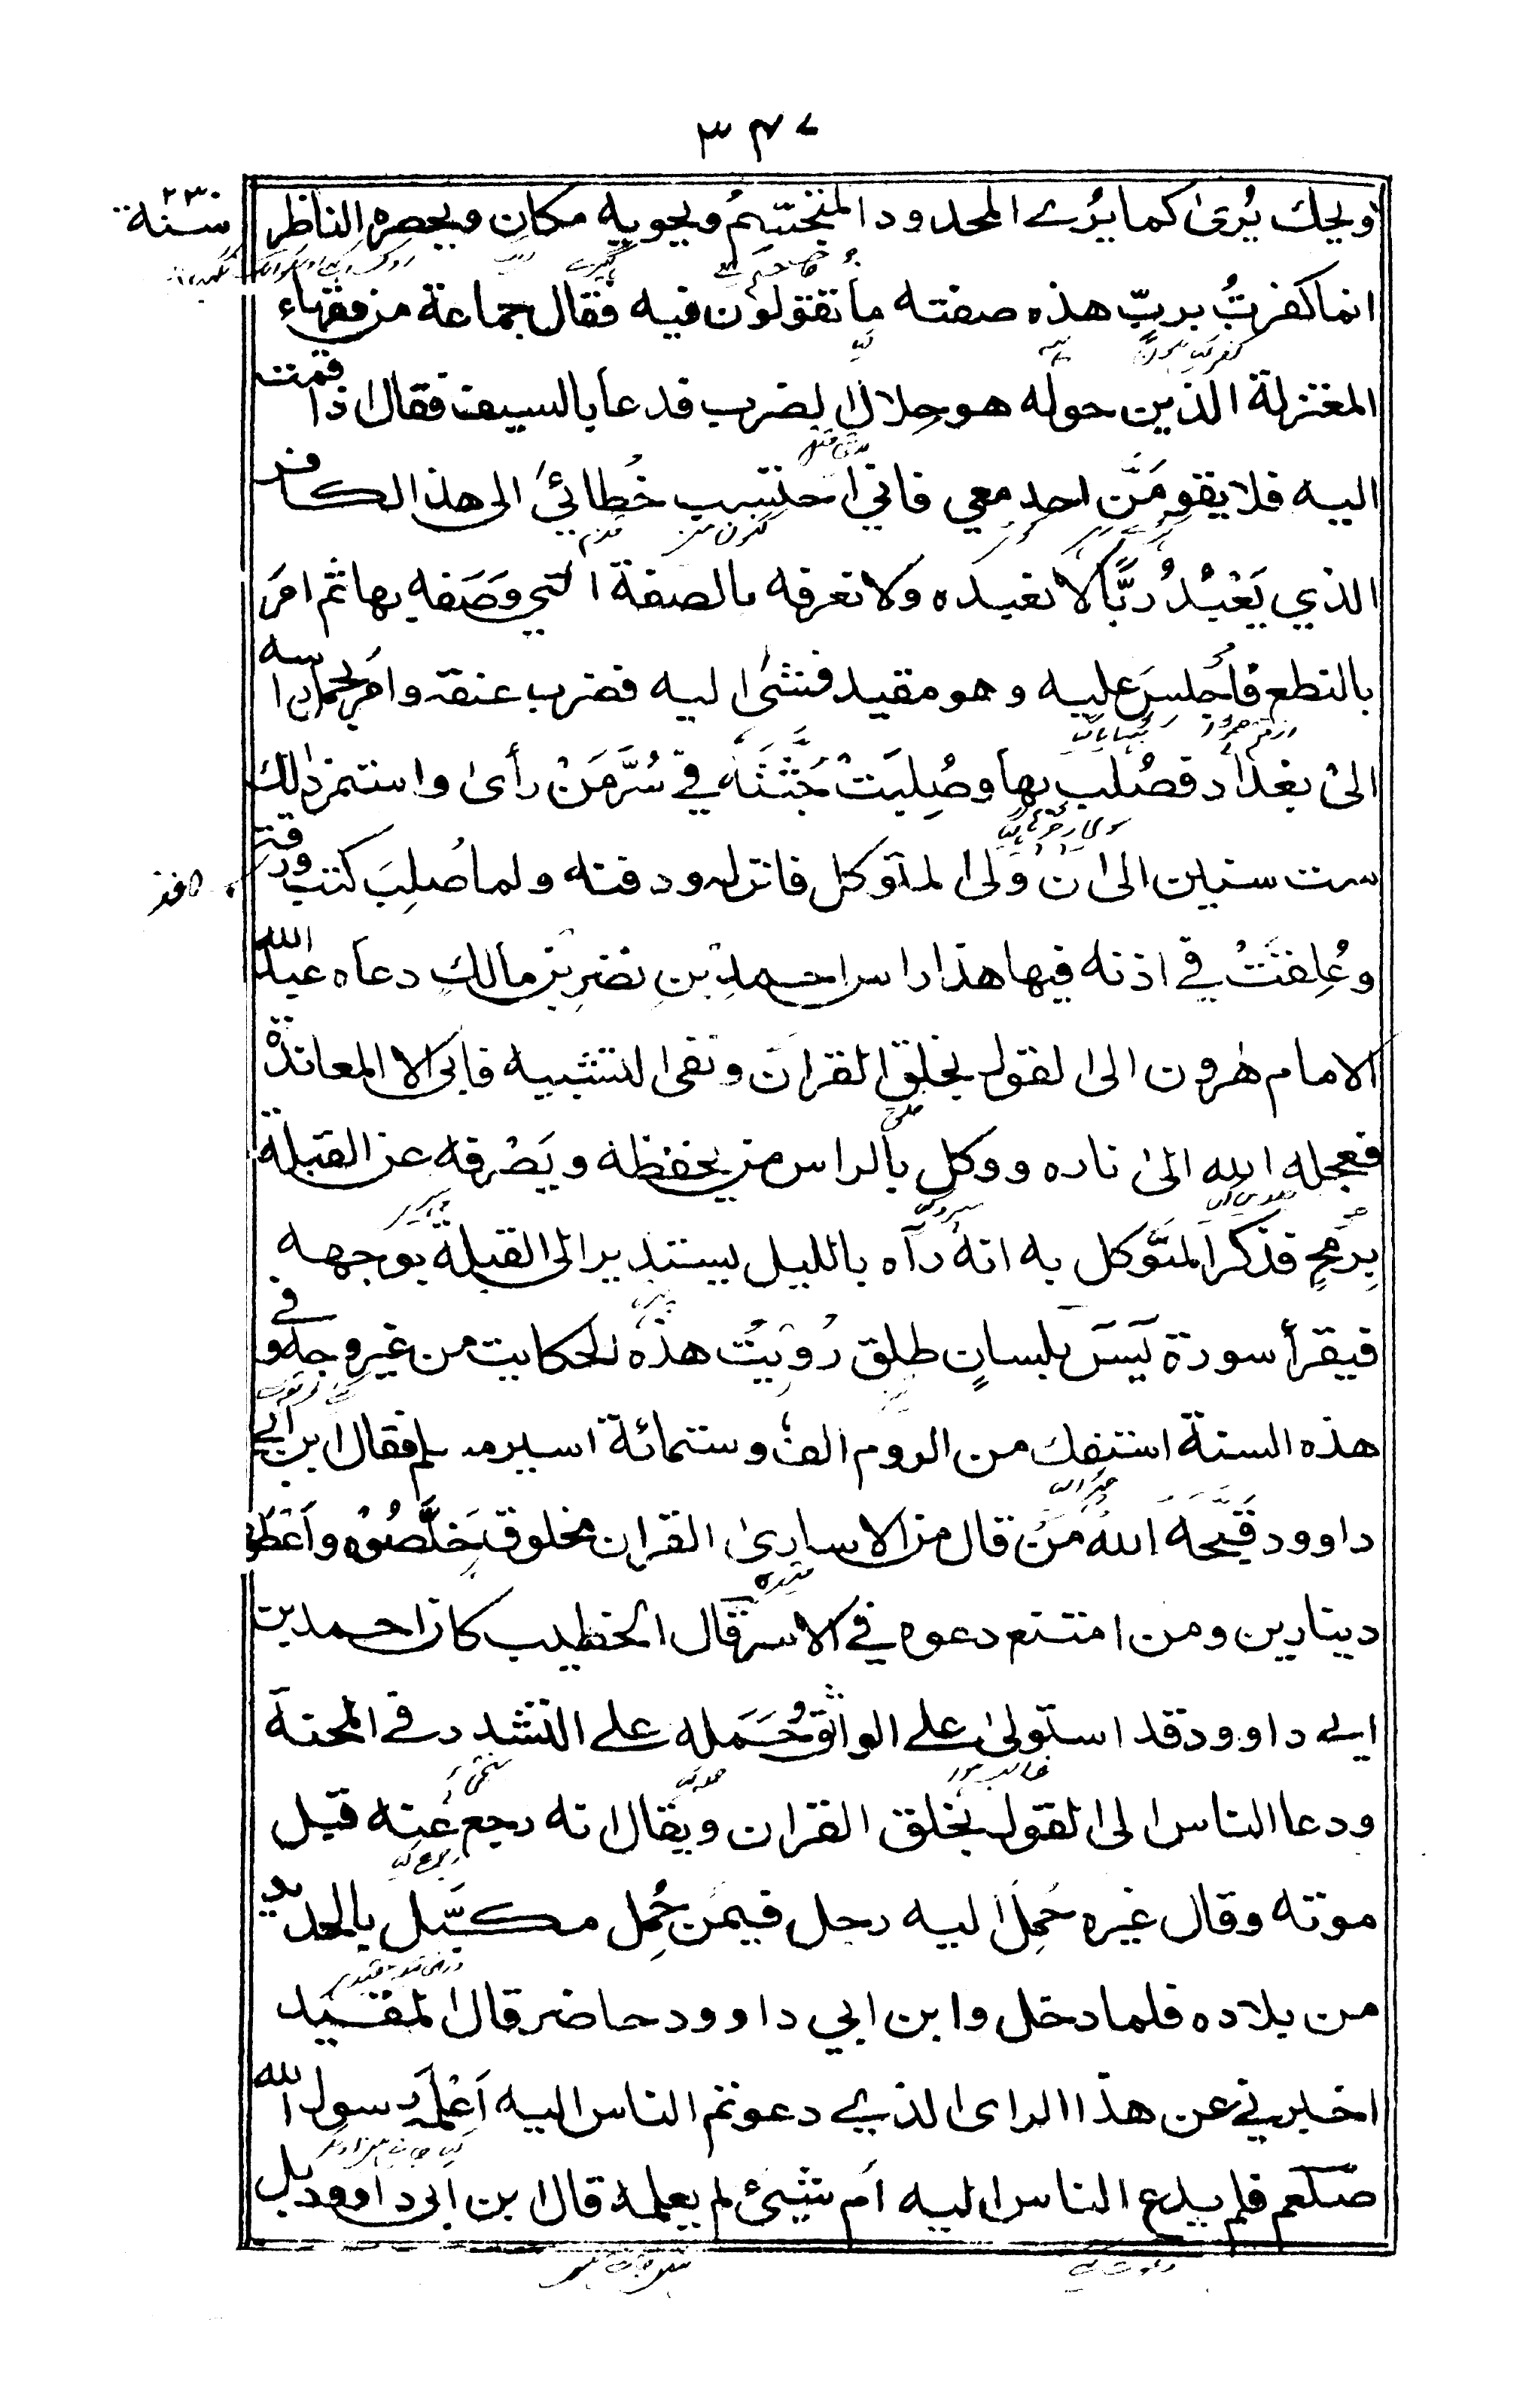 ٣٤٧
سنة ٢٣٠
ويحك يُرىٰ كما يُرے المحدود المتجسّمُ ويحويه مكانٍ ويحصره الناظِر
انما كفرتُ بربّ هذه صفته ما تقولون فيه فقال جماعة من فقهاء
المعتزلة الذين حوله هو حلال الضرب فدعا بالسيف فقال اذا قمت
اليه فلا يقومَنَّ احد معي فاني احتسب خُطائيَ الى هذا الكافر
الذي يَعْبُدُ ربًّا لا نعبده ولا نعرفه بالصفة التي وَصَفه بها ثم امَر
بالنطع فأُجلِسَ عليه وهو مقيد فمشىٰ اليه فضرب عنقه وامَر بحمل راسه
الىٰ بغداد فصُلب بها وصُلِبَتْ جُثَّتَه في سُرَّ مَنْ رأىٰ واستمر ذالك
ست سنين الى ان وَلى المتوكل فانزله ودفنه ولما صُلِبَ كتب ورقة
وعُلِقَتْ في اذنه فيها هذا راس احمد بن نصر بن مالك دعاه عبد الله
الامام هٰرون الى القول بخلق القران ونفى التشبيه فابى الا المعاندة
فعجله الله الىٰ ناره ووكل بالراس من يحفظه ويَصْرفه عن القبلة
بِرمحٍ فذكر المتَوكل به انه رآه بالليل يستدير الى القبلة بوجهه
فيقرأ سورة يٓسٓ بلسانٍ طلق رُوِيَتْ هذه الحكايت من غير وجهٍ وفي
هذه السنة استفك من الروم الف وستمائة اسير مسلم فقال ابن ابي
داوود قَبَّحَهُ اللهُ مَن قال من الاسارىٰ القران مخلوق خَلَّصُوْه واَعْطوه
دينارين ومن امتنع دعوه في الاسر قال الخطيب كان احمد بن
ابي داوود قد استولىٰ على الواثق وحَمَله على التشدد في المحنة
ودعا الناس الى القول بخلق القران ويقال انه رجع عنه قبل
موته وقال غيره حُمِل اليه رجل فيمن حُمِل مكبَّل بالحديد
من بلاده فلما دخل وابن ابي داوود حاضر قال المقيد
اخبرني عن هذا الراى الذي دعوتم الناس اليه اَعَلِمَه رسول الله
صلعم فلم يدع الناس اليه اَم شيئ لم يعلمه قال ابن ابى داوود بل